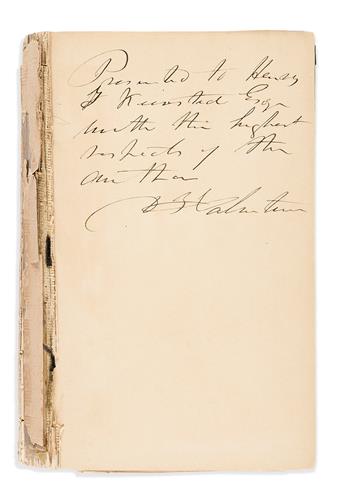 Presented to Henry
T Kiersted Esqr
with the highest
respects of the
author